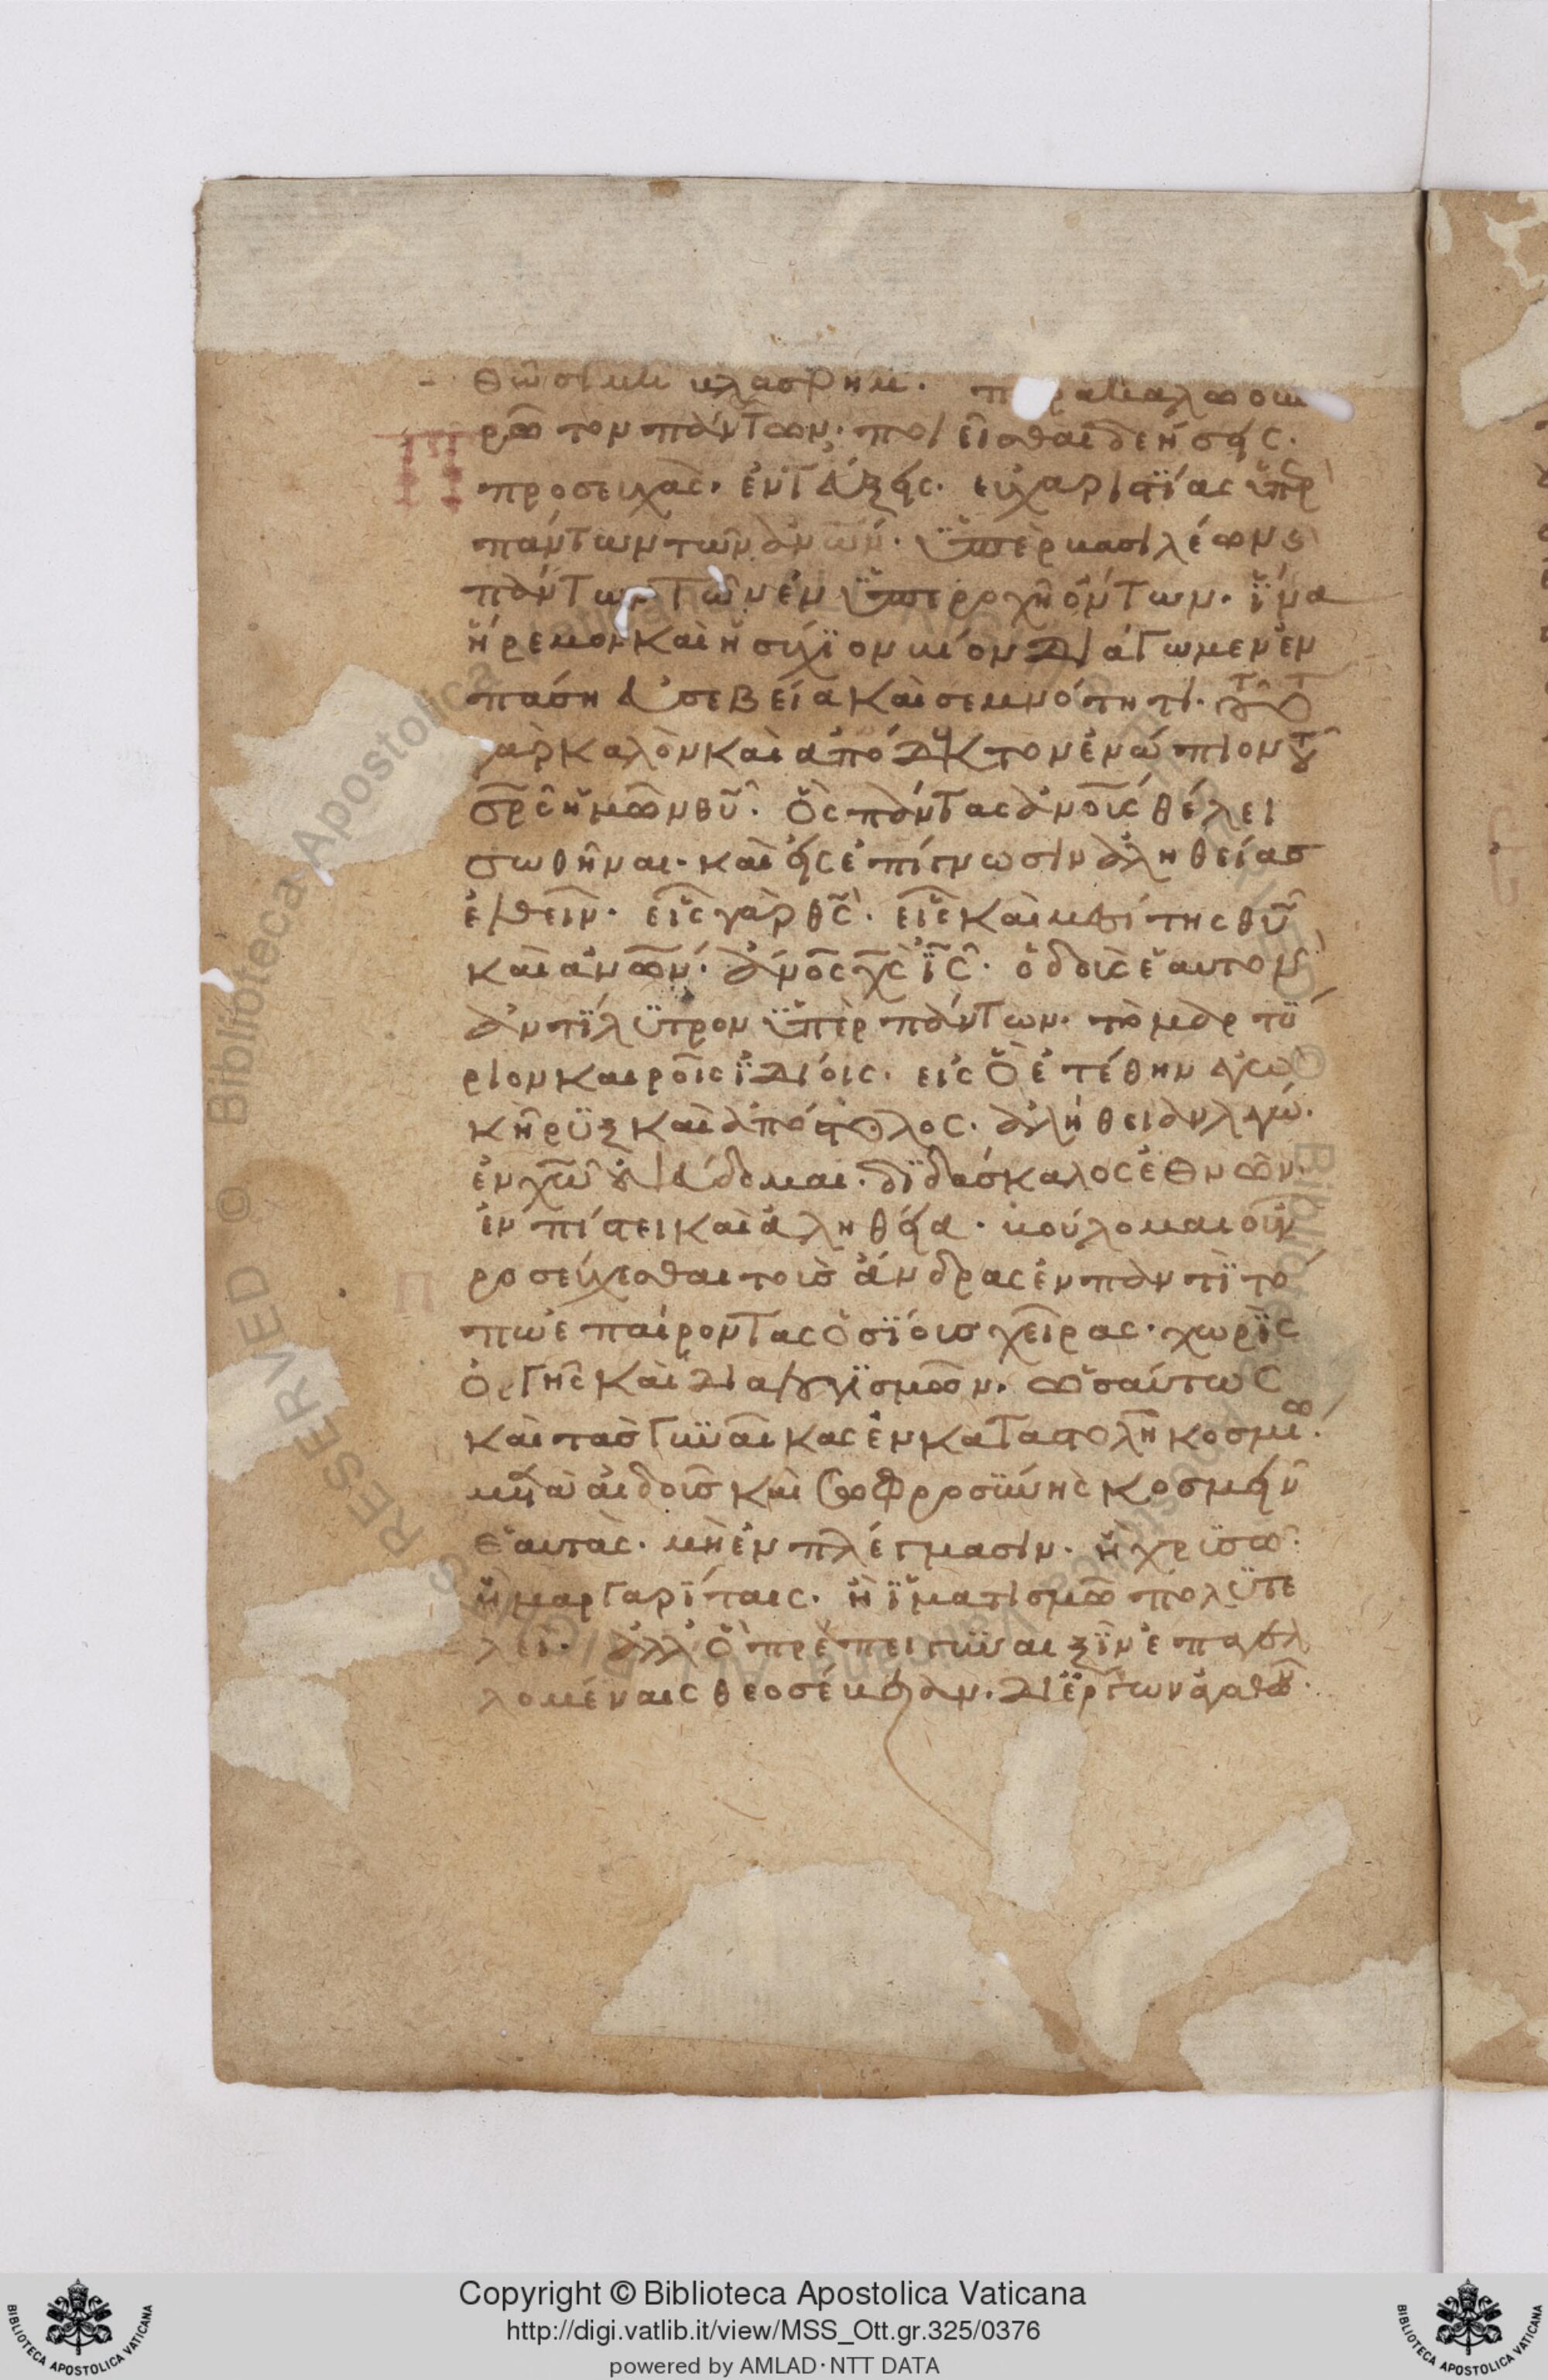 θῶσι μὴ βλασφημ. παρακαλῶ οὖν
ρῶτον πάντων. ποιεῖσθαι δεήσεις.
προσευχὰς. ἐντεύξεις. εὐχαριστΐας ὑπὲρ
πάντων τῶν ἀνῶν. ὑπὲρ βασιλέων ς
πάντων τῶν ἐν ὑπεροχῆ ὄντων. ἵνα
ἤρεμον καὶ ἡσύχϊον βίον διάγωμεν ἐν
πάση εὐσεβεία καὶ σεμνότητι. τοῦτο
γὰρ καλὸν καὶ ἀπόδεκτον ἐνώπιον τοῦ
σρς ἡμῶν θυ. ὃς πάντας ἀνοὺς θέλει
σωθῆναι. καὶ εἰς ἐπίγνωσιν ἀληθείασ
ἐλθεῖν. εἷς γὰρ θς. εἷς καὶ μεσίτης θυ
καὶ ἀνῶν. ἄνος χς ις. ὁ δοὺς ἑαυτον
ἀντΐλϋτρον ὑπὲρ πάντων. τὸ μαρτϋ
ριον καιροῖς ἰδίοις. εἰς ὃ ἐτέθην ἐγὼ
κῆρϋξ καὶ ἀπόστολος. ἀλήθειαν λέγω.
ἐν χω οὐ ψεύδομαι. δϊδάσκαλος ἐθνῶν.
ἐν πίστει καὶ ἀληθεία. βούλομαι οὖν
ροσεύχεσθαι τοὺσ ἄνδρας ἐν παντὶ τό
πω ἐπαίροντας ὁσΐουσ χεῖρας. χωρῒς
ὀργῆς καὶ διαλογϊσμῶν. ὡσαύτως
καὶ τὰσ γυναῖκας ἐν καταστολῆ κοσμίω.
μετὰ αἰδοῦσ καὶ σωφροσύνης κοσμεῖν
ἑαυτὰς. μὴ ἐν πλέγμασιν. ἢ χρϋσῶ.
ἢ μαργαρΐταις. ἢ ἱματισμῶ πολϋτε
λεῖ. ἀλλ' ὃ πρέπει γυναιξῒν ἐπαγγελ
λομέναις θεοσέβειαν. δι' ἔργων ἀγαθῶ.
Copyright © Biblioteca Apostolica Vaticana
http://digi.vatlib.it/view/MSS_Ott.gr.325/0376
powered by AMLAD·NTT DATA